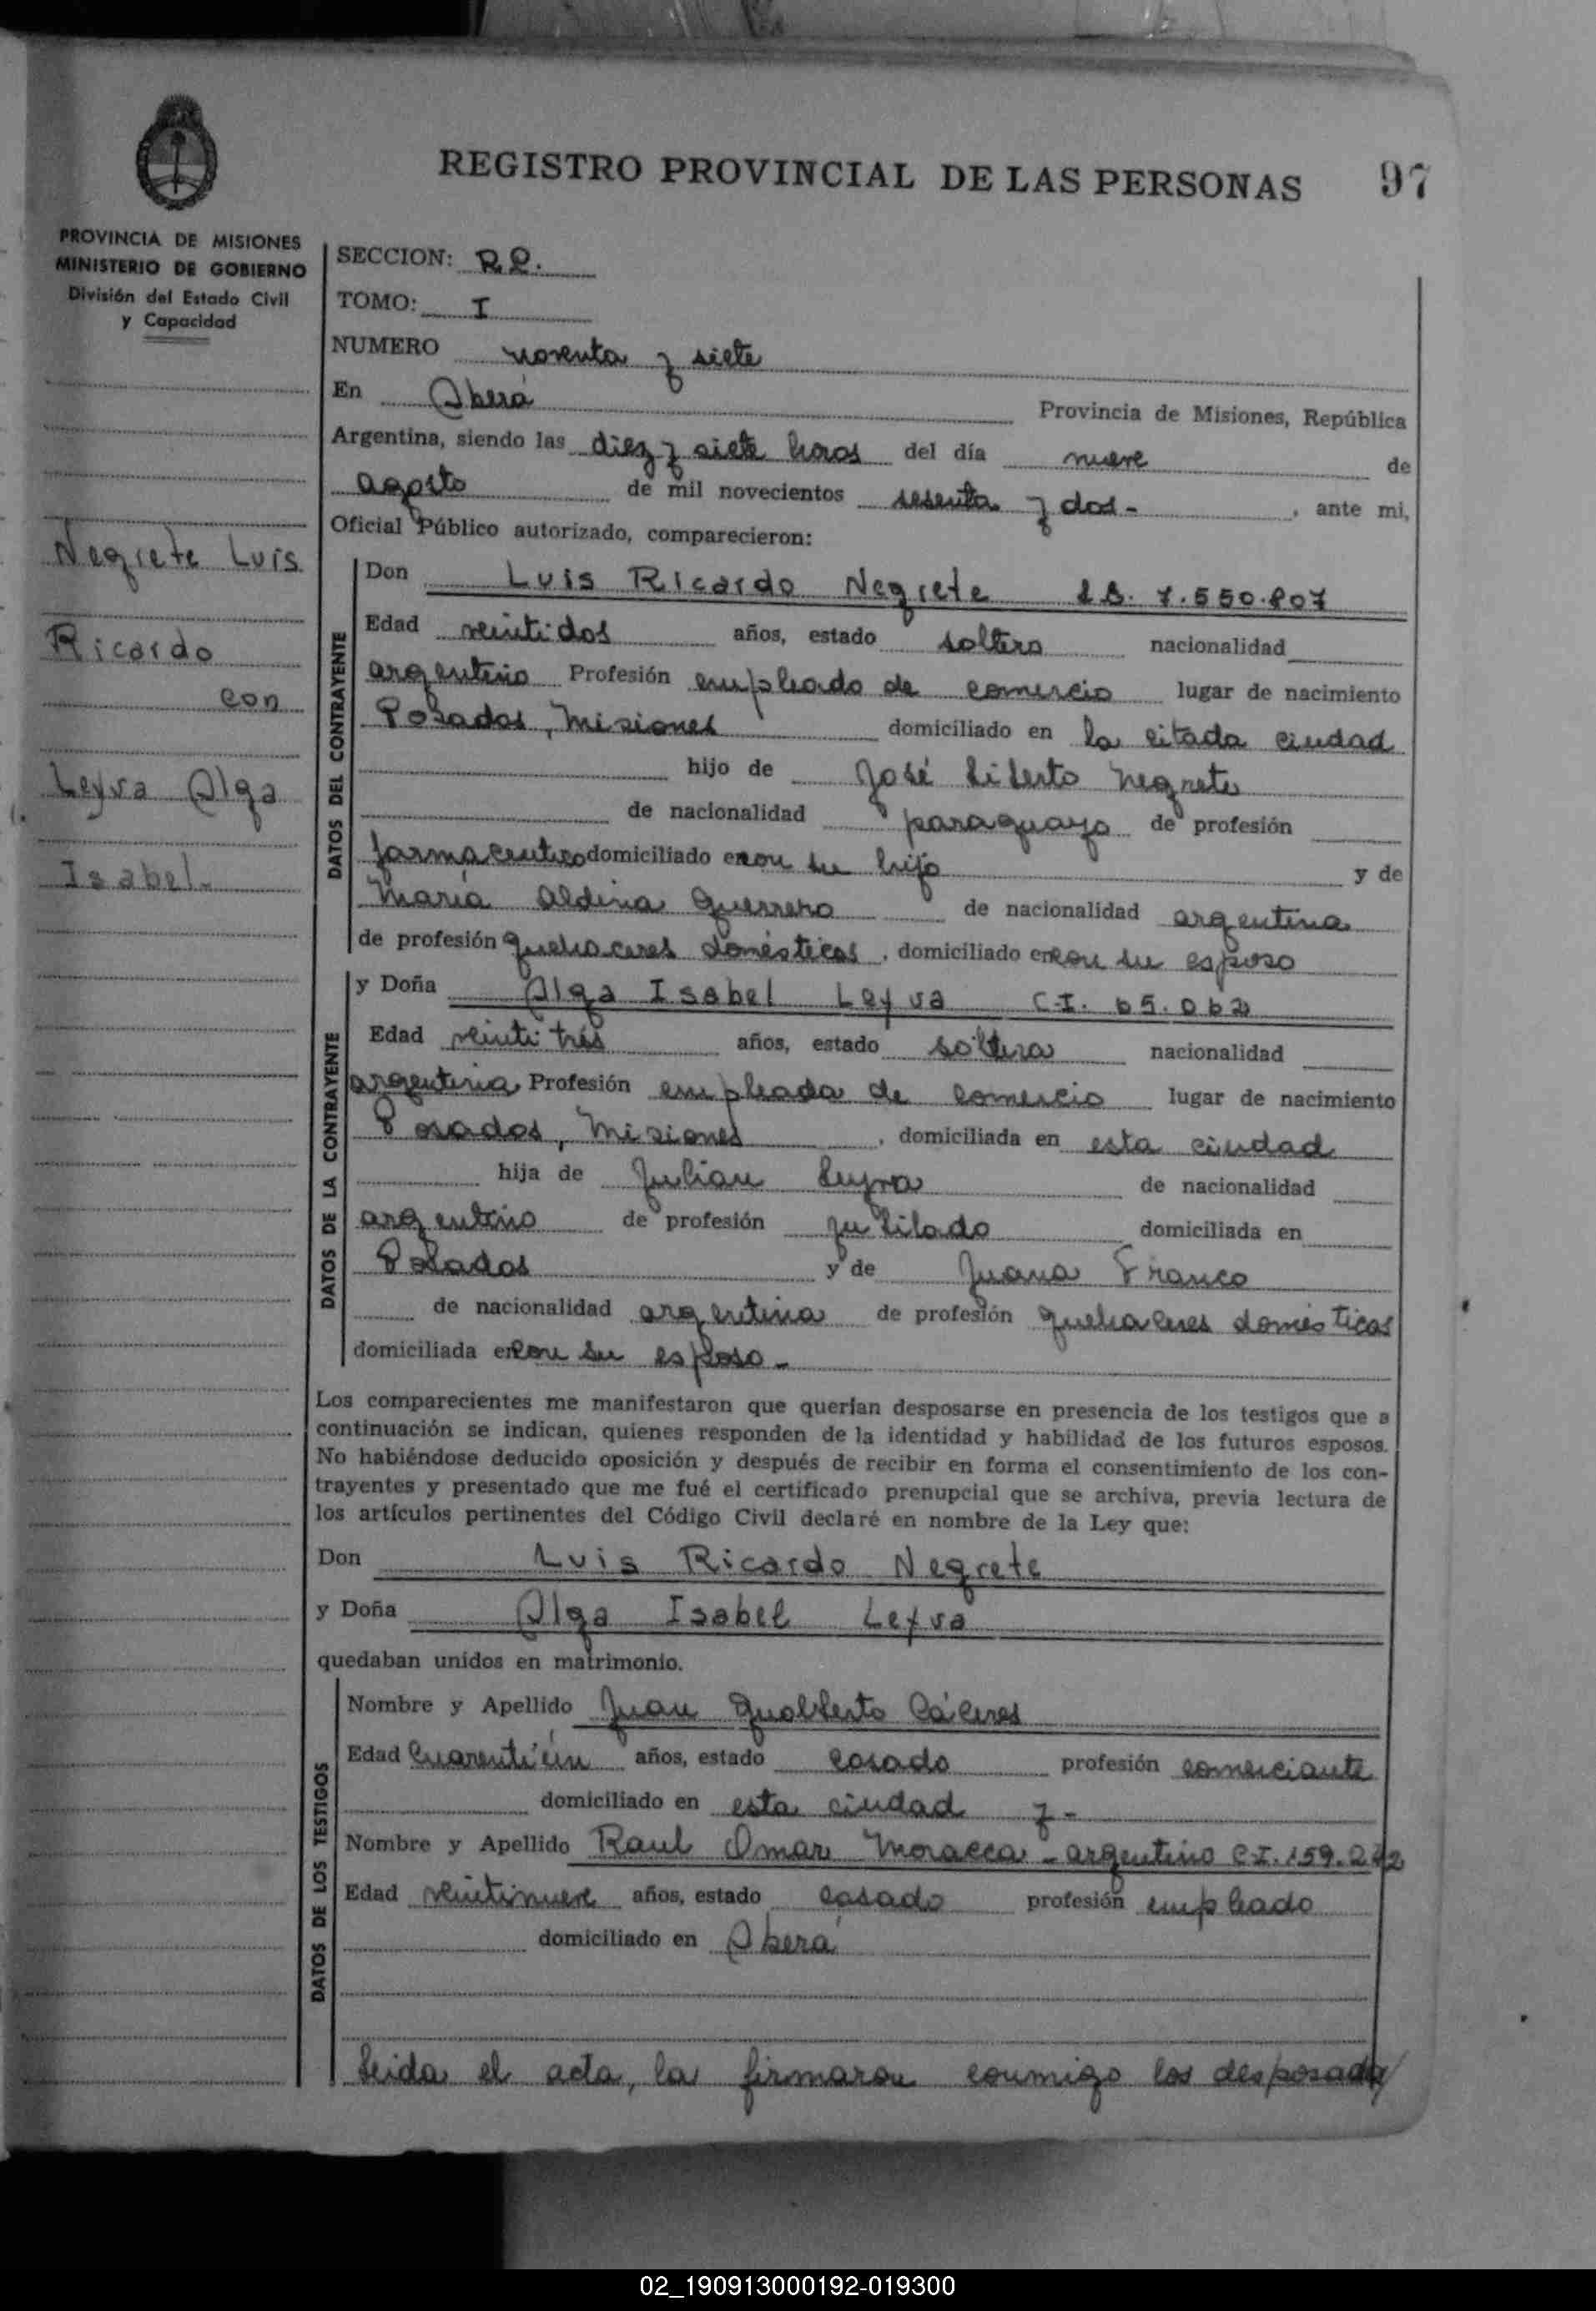 REGISTRO PROVINCIAL DE LAS PERSONAS 97
PROVINCIA DE MISIONES
MINISTERIO DE GOBIERNO
División del Estado Civil
y Capacidad
Negrete Luis
Ricardo
con
Leyva Olga
Isabel.
SECCION: R.P.
TOMO: I
NUMERO noventa y siete
En Oberá Provincia de Misiones, República
Argentina, siendo las diez y siete horas del día nueve de
agosto de mil novecientos sesenta y dos- , ante mi,
Oficial Público autorizado, comparecieron:
DATOS DEL CONTRAYENTE
Don Luis Ricardo Negrete 7.550.807
Edad veintidos años, estado soltero nacionalidad
argentino Profesión empleado de comercio lugar de nacimiento
Posadas, Misiones domiciliado en la citada ciudad
hijo de José Liberto Negrete
de nacionalidad paraguayo de profesión
farmaceutico domiciliado en con su hijo y de
María Aldina Guerrero de nacionalidad argentina
de profesión quehaceres domésticos, domiciliado en con su esposo
DATOS DE LA CONTRAYENTE
y Doña Olga Isabel Leyva C.I. 65.062
Edad veinti trés años, estado soltera nacionalidad
argentina Profesión empleada de comercio lugar de nacimiento
Posadas, Misiones , domiciliada en esta ciudad
hija de Julian Leyva de nacionalidad
argentino de profesión jubilado domiciliada en
Posadas y de Juana Franco
de nacionalidad argentina de profesión quehaceres domésticos
domiciliada en con su esposo-
Los comparecientes me manifestaron que querían desposarse en presencia de los testigos que a
continuación se indican, quienes responden de la identidad y habilidad de los futuros esposos.
No habiéndose deducido oposición y después de recibir en forma el consentimiento de los con-
trayentes y presentado que me fué el certificado prenupcial que se archiva, previa lectura de
los artículos pertinentes del Código Civil declaré en nombre de la Ley que:
Don Luis Ricardo Negrete
y Doña Olga Isabel Leyva
quedaban unidos en matrimonio.
DATOS DE LOS TESTIGOS
Nombre y Apellido Juan Gualberto Cáceres
Edad años, estado casado profesión comerciante
domiciliado en esta ciudad y-
Nombre y Apellido Raul Omar Moracca - argentino C.I. 159.242
Edad veintinueve años, estado casado profesión empleado
domiciliado en Oberá
Leida el acta, la firmaron conmigo los desposados
02_190913000192-019300